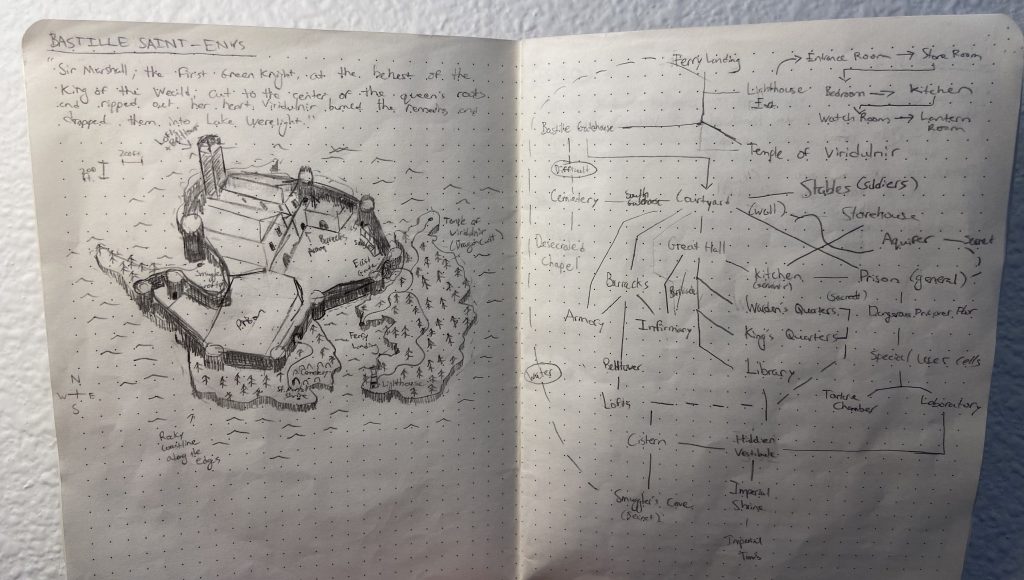 BASTILLE SAINT-ENVS
"Sir Marshall, the First Green Knight, at the behest of the
King of the World, cut to the center of the queen's roots
and ripped out her heart. Viridulnir burned the remnants and
dropped them into Lake Werelight."
200ft
Temple of
Viridulnir
Prison
Ferry
Lighthouse
Cemetery
N
W E
S
Rocky
coastline
along the
edges
Ferry Landing
Entrance Room
Store Room
Lighthouse
Bedroom
Kitchen
Watch Room
Lantern
Room
Bastille Gatehouse
Temple of Viridulnir
Difficult
Cemetery
Courtyard
Stables (soldiers)
(Wall)
Storehouse
Desecrated
Chapel
Great Hall
Aquifer
Secret
Kitchen
Prison (general)
Barracks
Warden's Quarters
(Secret)
Armory
Infirmary
King's Quarters
Special/User Cells
Library
Water
Lofts
Torture
Chamber
Laboratory
Cistern
Hidden
Vestibule
Smuggler's Cove
(Secret)
Imperial
Shrine
Imperial